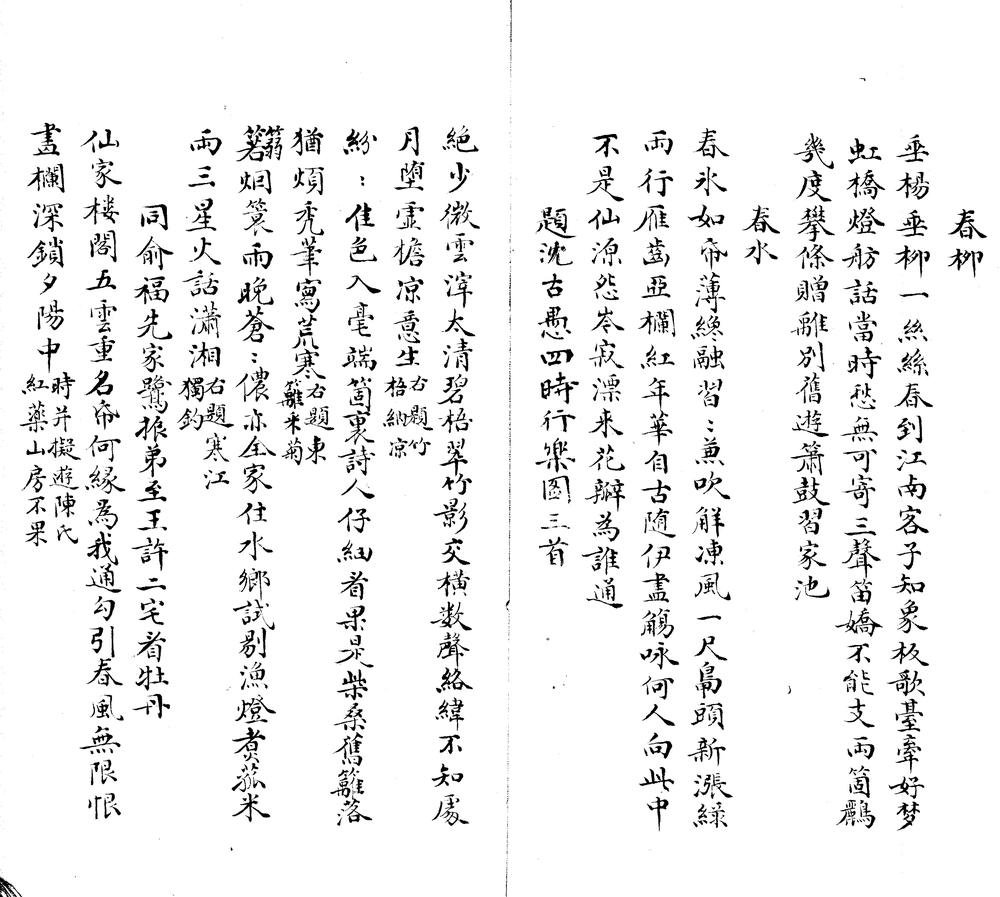 春柳
垂楊垂柳一絲絲春到江南客子知象板歌臺牽好梦
虹橋燈舫話當時愁無可寄三聲笛嬌不能支兩箇鸝
幾度攀條贈離別舊遊簫鼓習家池
春水
春氷如帋薄纔融習〻兼吹解凍風一尺鳧頭新漲綠
兩行雁齒亞欄紅年華自古随伊盡觴咏何人向此中
不是仙源怨岑寂漂来花瓣為誰通
題沈古愚四時行樂圖三首
絕少微雲滓太清碧梧翠竹影交橫数聲絡緯不知處
月墮虛檐凉意生右題竹梧納凉
紛〻佳色入毫端箇裏詩人仔細看果是柴桑舊籬落
猶煩禿筆寫荒寒右題東籬采菊
篛笠烟簑雨晚蒼〻儂亦全家住水鄉試剔漁燈煮菰米
兩三星火話瀟湘右題寒江獨釣
同俞福先家鷺振弟至王許二宅看牡丹
仙家楼閣五雲重名帋何緣為我通勾引春風無限恨
畫欄深鎖夕陽中時并擬遊陳氏紅藥山房不果